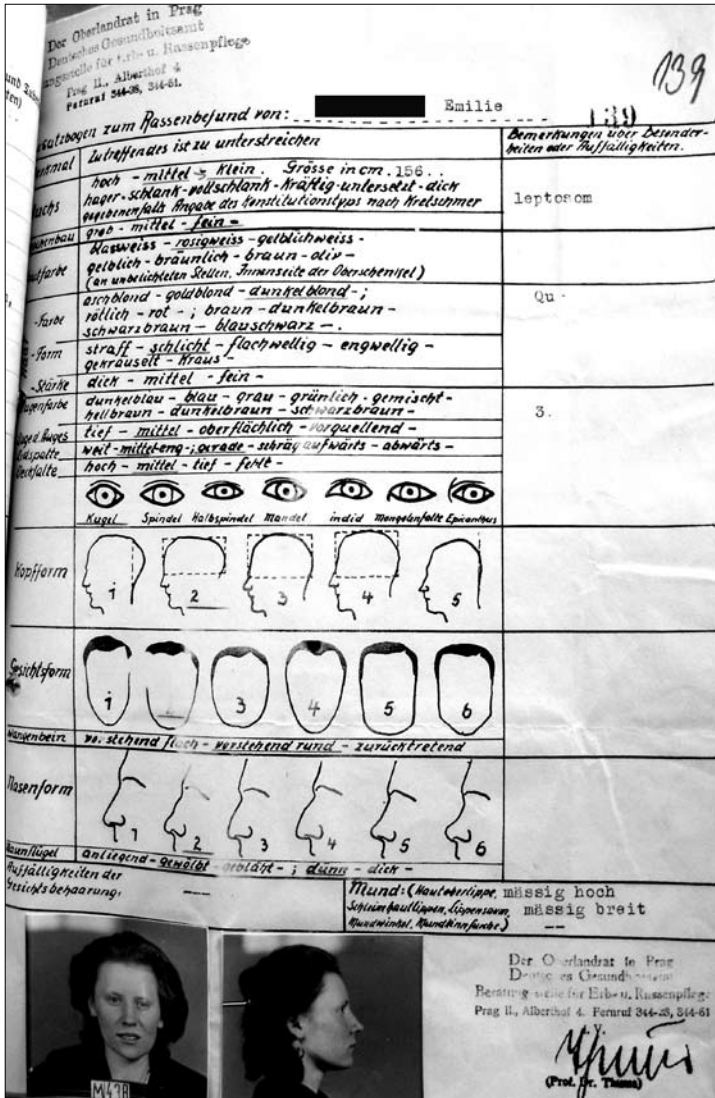 Der Oberlandrat in Prag
Deutsches Gesundheitsamt
ungsstelle für Erb- u. Rassenpflege
Prag II., Alberthof 4
Fernruf 344-28, 344-61.
139
139
satzbogen zum Rassenbefund von: Emilie
Zutreffendes ist zu unterstreichen
Bemerkungen über Besonder-
heiten oder Auffälligkeiten.
hoch - mittel - klein. Grösse in cm. 156..
hager - schlank - vollschlank - kräftig - untersetzt - dick
gegebenenfalls Angabe des Konstitutionstyps nach Kretschmer
leptosom
grob - mittel - fein -
blassweiss - rosigweiss - gelblichweiss -
gelblich - bräunlich - braun - oliv -
(an unbelichteten Stellen, Innenseite der Oberschenkel)
-Farbe
aschblond - goldblond - dunkelblond -;
rötlich - rot - ; braun - dunkelbraun -
schwarzbraun - blauschwarz -.
Qu
-Form
straff - schlicht - flachwellig - engwellig -
gekräuselt - Kraus -
-Stärke dick - mittel - fein -
Augenfarbe
dunkelblau - blau - grau - grünlich - gemischt -
hellbraun - dunkelbraun - schwarzbraun -
3.
tief - mittel - oberflächlich - vorquellend -
weit - mittel - eng - ; gerade - schräg aufwärts - abwärts -
Deckfalte hoch - mittel - tief - fehlt -
Kugel Spindel Halbspindel Mandel indid Mongolenfalte Epicanthus
Kopfform
1 2 3 4 5
Gesichtsform
1 2 3 4 5 6
Wangenbein vorstehend flach - vorstehend rund - zurücktretend
Nasenform
1 2 3 4 5 6
Nasenflügel anliegend - gewölbt - gebläht - ; dünn - dick -
Auffälligkeiten der
Gesichtsbehaarung: ---
Mund: (Hautoberlippe, mässig hoch
Schleimhautlippen, Lippensaum, mässig breit
Mundwinkel, Mundkinnfurche) --
Der Oberlandrat in Prag
Deutsches Gesundheitsamt
Beratungsstelle für Erb- u. Rassenpflege
Prag II., Alberthof 4. Fernruf 344-28, 344-61
I. V.
(Prof. Dr. Thums)
M438